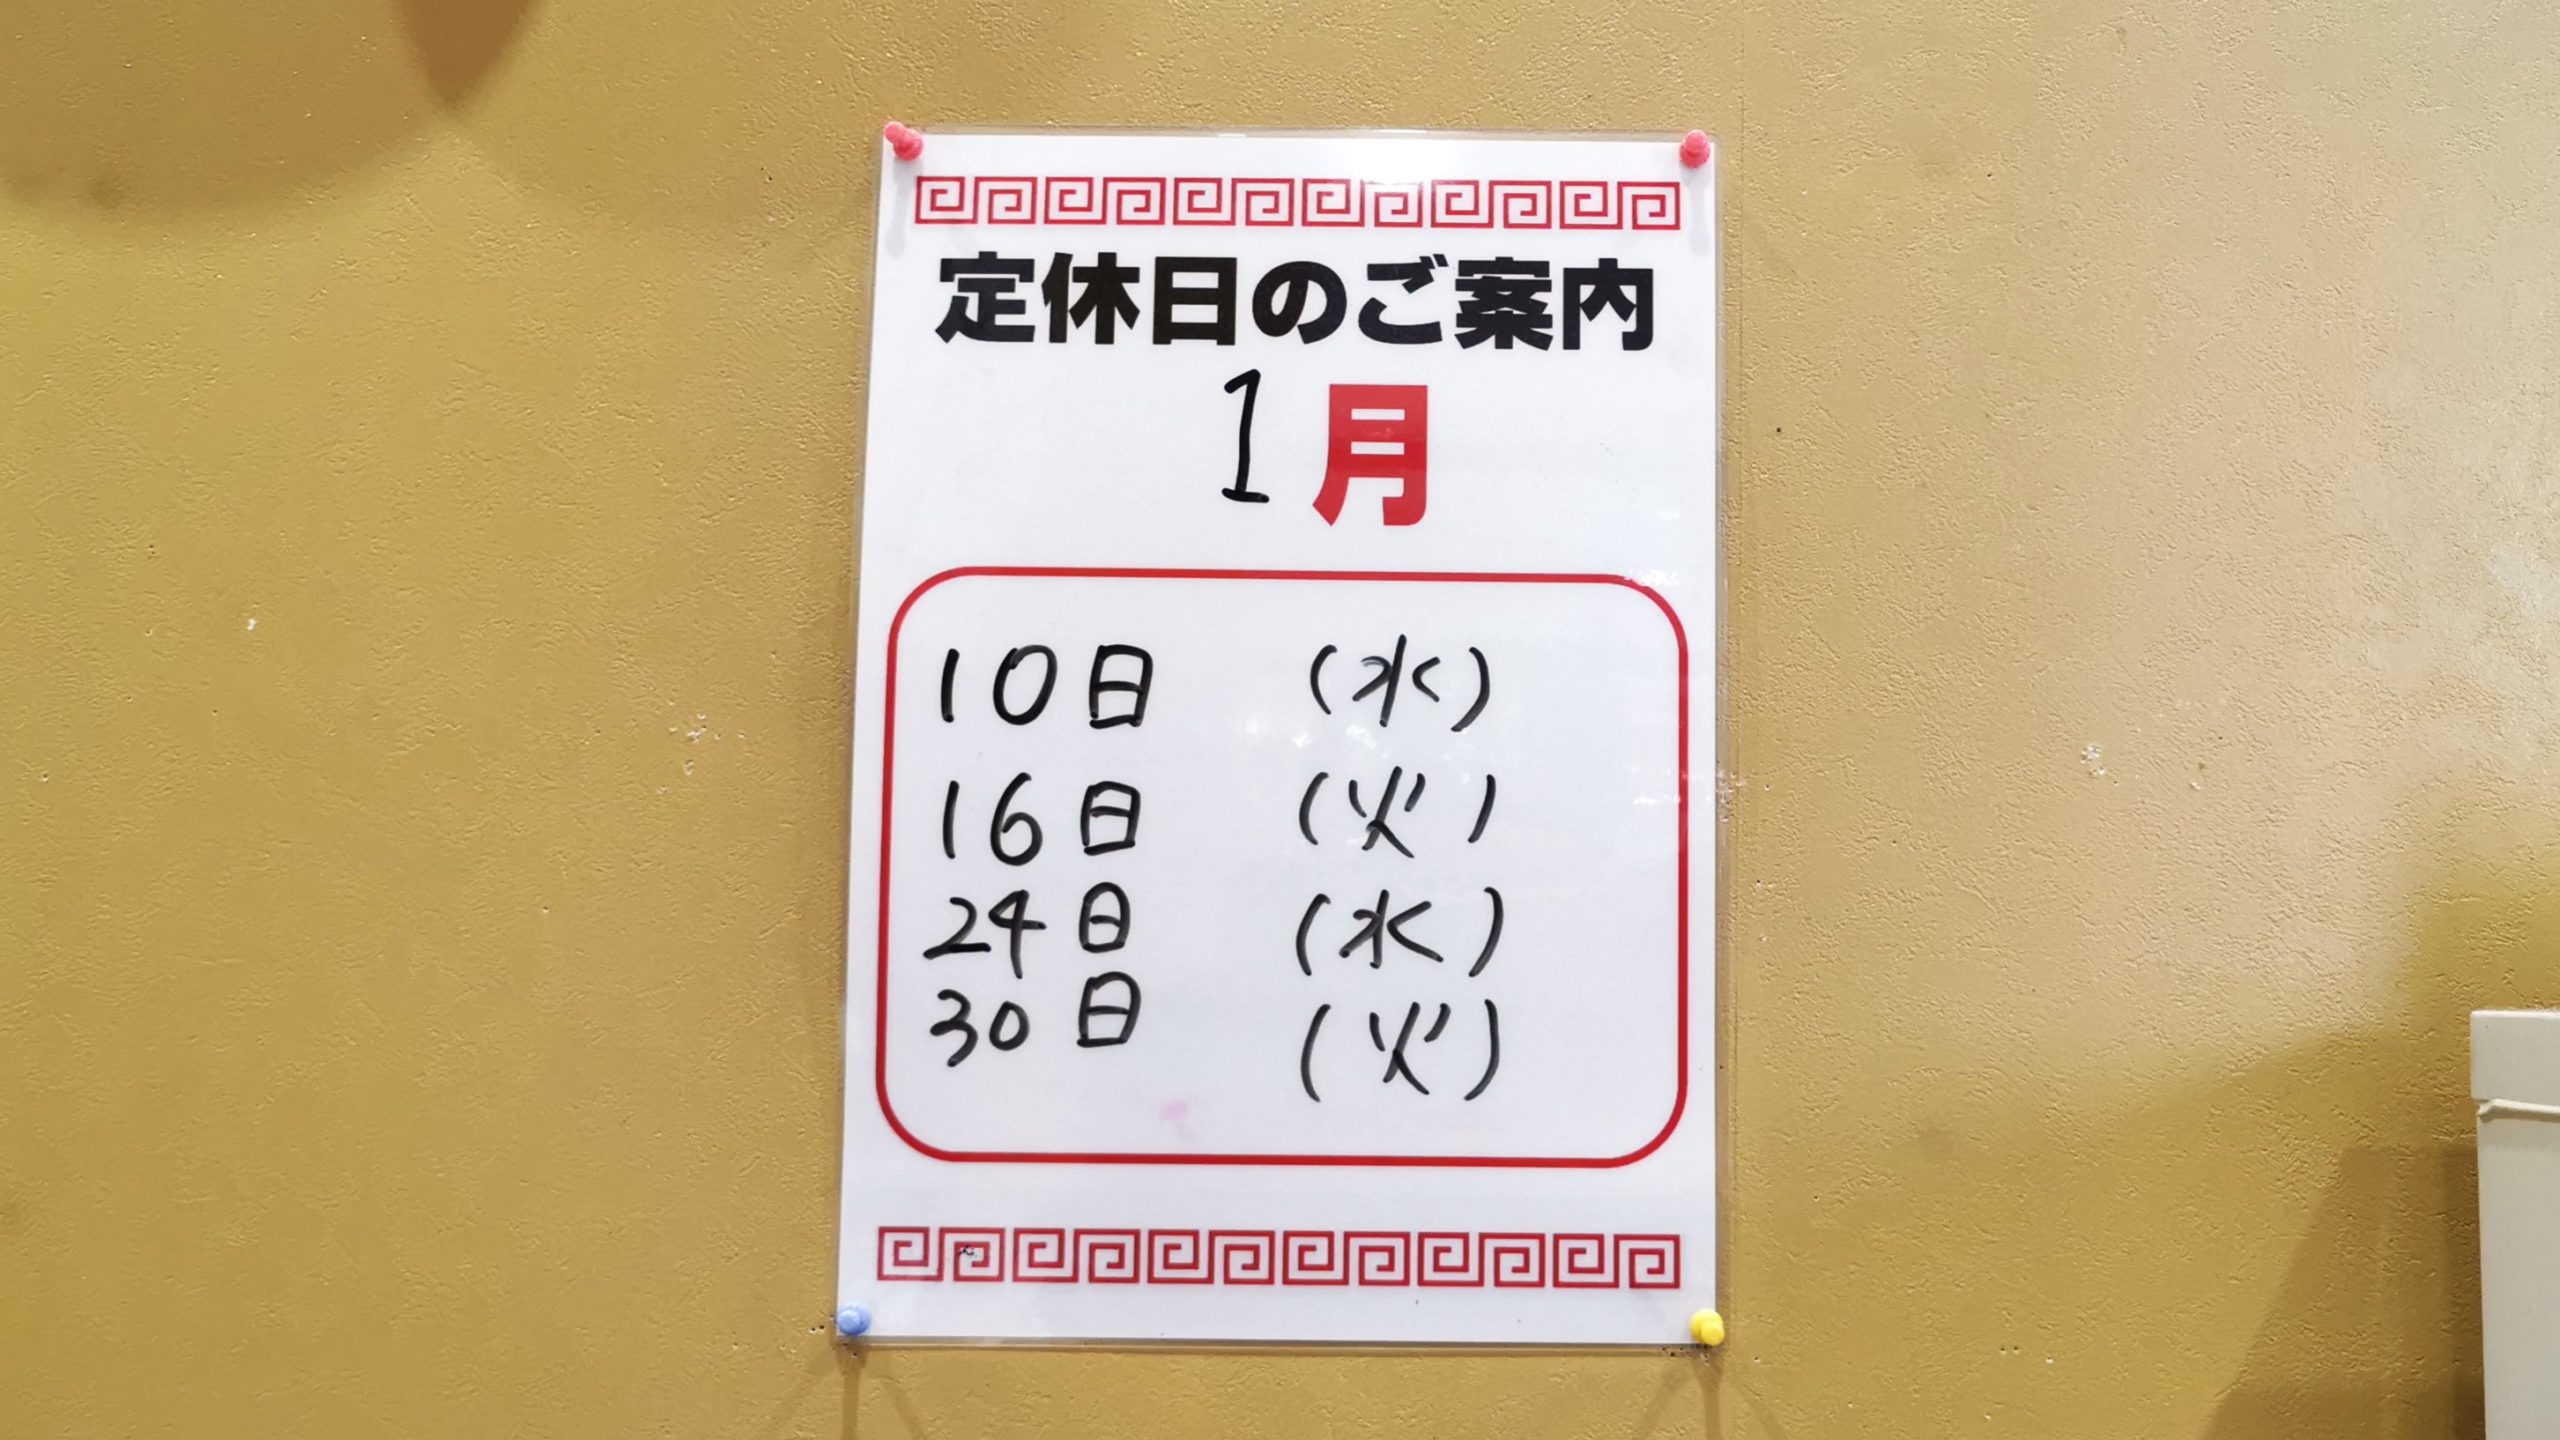 定休日のご案内
1月
10日 (水)
16日 (火)
24日 (水)
30日 (火)